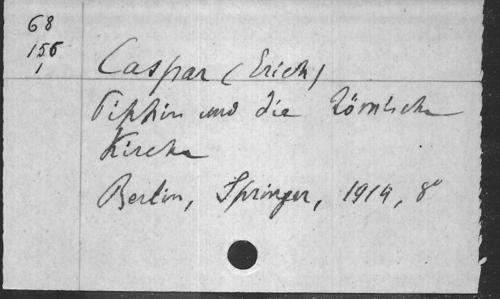 68
156
1
Caspar (Erich)
Pippin und die römische
Kirche
Berlin, Springer, 1914, 8°